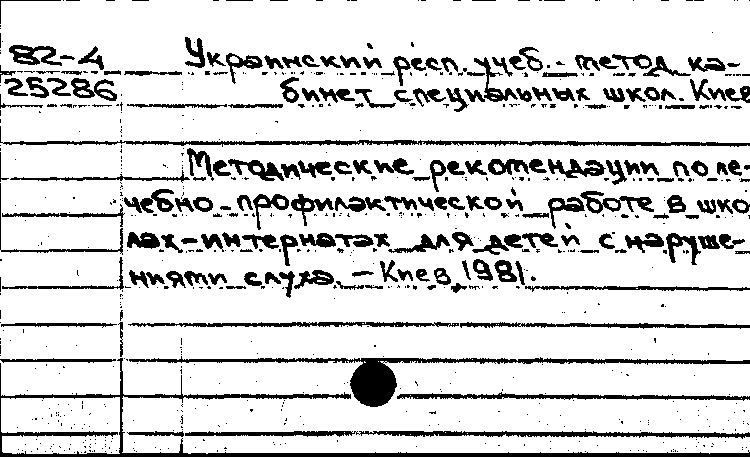 82-4 Украинский респ. учеб.-метод. ка-
25286 бинет специальных школ. Киев
Методические рекомендации по ле-
чебно-профилактической работе в шко
лах-интернатах для детей с наруше-
ниями слуха. - Киев, 1981.